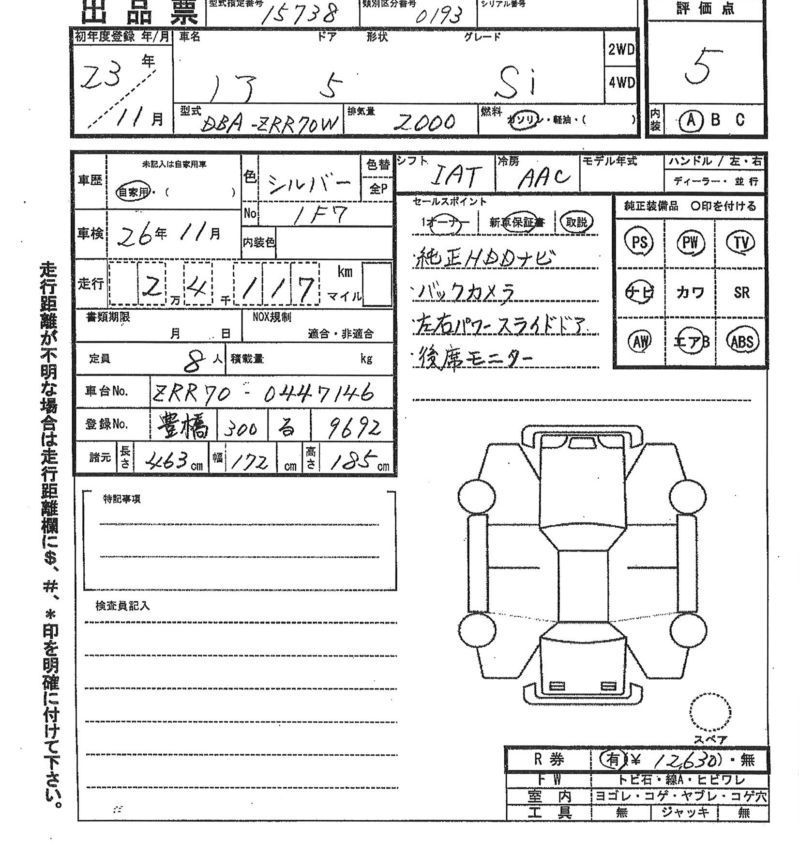 出品票
型式指定番号 15738 類別区分番号 0193 シリアル番号
評価点
5
内装 Ⓐ B C
初年度登録 年/月 車名 ドア 形状 グレード
23年 / 11月 5 Si
2WD
4WD
型式 DBA-ZRR70W 排気量 2000 燃料 ガソリン・軽油・( )
車歴 未記入は自家用車 自家用・( ) 色 シルバー 色替 全P
No 1F7
シフト IAT 冷房 AAC モデル年式 ハンドル / 左・右
ディーラー・並行
車検 26年 11月 内装色
走行 2万4千117 km マイル
書類期限 月 日 NOX規制 適合・非適合
定員 8人 積載量 kg
車台No. ZRR70-0447146
登録No. 豊橋 300 る 9692
諸元 長さ 463cm 幅 172cm 高さ 185cm
セールスポイント
1オーナー 新車保証書 取説
純正HDDナビ
バックカメラ
左右パワースライドドア
後席モニター
純正装備品 〇印を付ける
PS PW TV
ナビ カワ SR
AW エアB ABS
特記事項
検査員記入
スペア
R券 有(¥ 12,630)・無
FW トビ石・線A・ヒビワレ
室内 ヨゴレ・コゲ・ヤブレ・コゲ穴
工具 無 ジャッキ 無
走行距離が不明な場合は走行距離欄に$、#、*印を明確に付けて下さい。